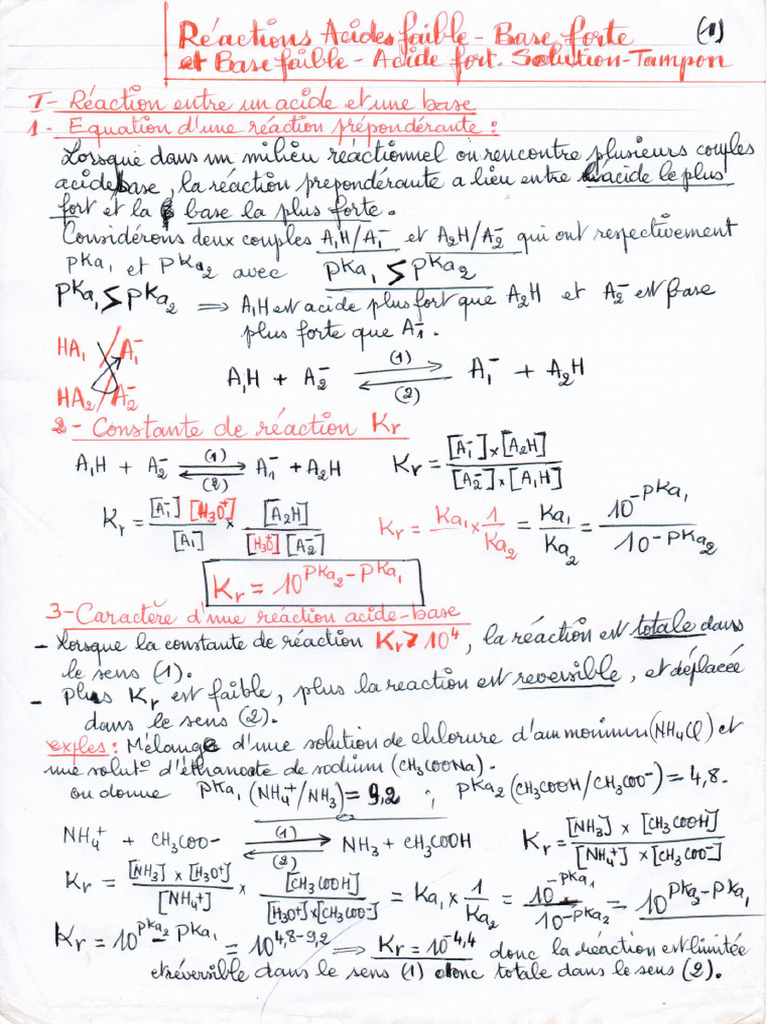 Réactions Acides faible - Base forte (1)
et Base faible - Acide fort. Solution-Tampon
I- Réaction entre un acide et une base
1- Equation d'une réaction prépondérante :
Lorsque dans un milieu réactionnel on rencontre plusieurs couples
acide/base, la réaction prepondérante a lieu entre l'acide le plus
fort et la base la plus forte.
Considérons deux couples A₁H/A₁⁻ et A₂H/A₂⁻ qui ont respectivement
pKa₁ et pKa₂ avec pKa₁ < pKa₂
pKa₁ < pKa₂ ⟹ A₁H est acide plus fort que A₂H et A₂⁻ est base
plus forte que A₁⁻.
HA₁ / A₁⁻
HA₂ / A₂⁻
A₁H + A₂⁻ ⇌ (1) (2) A₁⁻ + A₂H
2- Constante de réaction Kr
A₁H + A₂⁻ ⇌ (1) (2) A₁⁻ + A₂H Kr = [A₁⁻]×[A₂H] / [A₂⁻]×[A₁H]
Kr = [A₁⁻][H₃O⁺] / [A₁] × [A₂H] / [H₃O⁺][A₂⁻] Kr = Ka₁ × 1/Ka₂ = Ka₁/Ka₂ = 10^-pKa₁ / 10^-pKa₂
Kr = 10^pKa₂-pKa₁
3- Caractère d'une réaction acide-base
- Lorsque la constante de réaction Kr > 10⁴, la réaction est totale dans
le sens (1).
- Plus Kr est faible, plus la reaction est reversible, et déplacée
dans le sens (2).
exples : Mélange d'une solution de chlorure d'ammonium (NH₄Cl) et
une solut° d'éthanoate de sodium (CH₃COONa).
on donne pKa₁ (NH₄⁺/NH₃) = 9,2 ; pKa₂ (CH₃COOH/CH₃COO⁻) = 4,8.
NH₄⁺ + CH₃COO- ⇌ (1) (2) NH₃ + CH₃COOH Kr = [NH₃] × [CH₃COOH] / [NH₄⁺] × [CH₃COO⁻]
Kr = [NH₃] × [H₃O⁺] / [NH₄⁺] × [CH₃COOH] / [H₃O⁺]×[CH₃COO-] = Ka₁ × 1/Ka₂ = 10^-pKa₁ / 10^-pKa₂ = 10^pKa₂-pKa₁
Kr = 10^pKa₂-pKa₁ = 10^4,8-9,2 ⟹ Kr = 10^-4,4 donc la réaction est limitée
et réversible dans le sens (1) donc totale dans le sens (2).